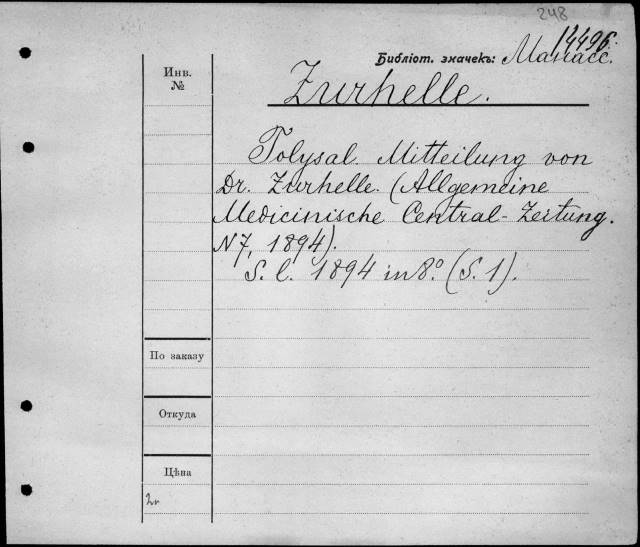 248
14496.
Библіот. значекъ: Манасс.
Инв.
№
Zurhelle.
Tolysal. Mitteilung von
Dr. Zurhelle. (Allgemeine
Medicinische Central-Zeitung.
N7, 1894).
S. l. 1894 in 8º. (S. 1).
По заказу
Откуда
Цѣна